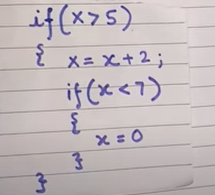 if(x>5)
{ x=x+2;
if(x<7)
{
x=0
}
}